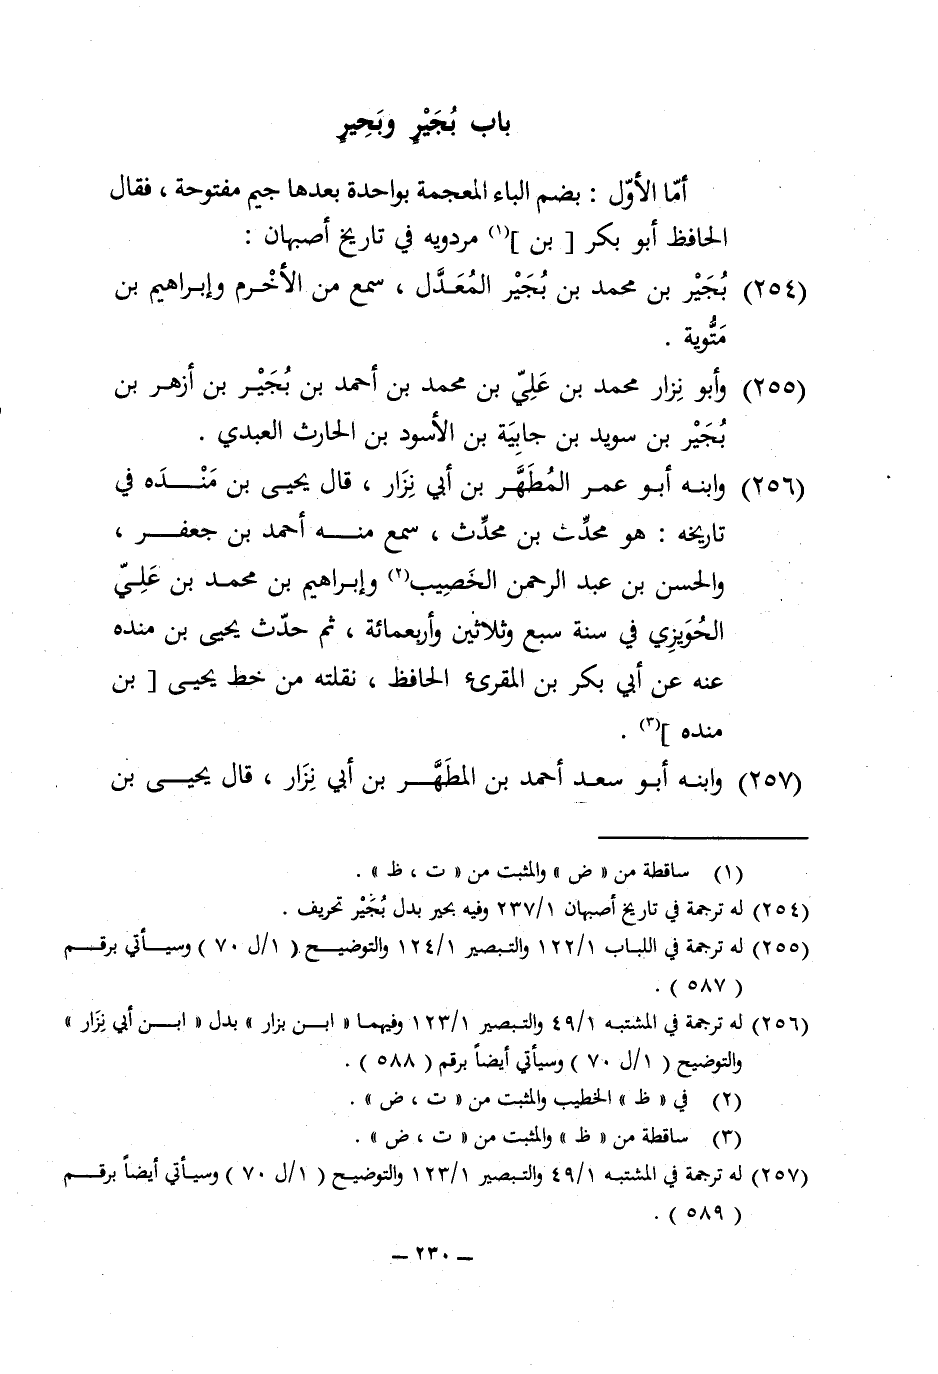 باب بُجَيْرٍ وبَحِيرٍ
أمّا الأوّل : بضم الباء المعجمة بواحدة بعدها جيم مفتوحة ، فقال
الحافظ أبو بكر [ بن ](١) مردويه في تاريخ أصبهان :
(٢٥٤) بُجَيْر بن محمد بن بُجَيْر المُعَدَّل ، سمع من الأخْرم وإبراهيم بن
مَتُّوية .
(٢٥٥) وأبو نِزار محمد بن عَلِيّ بن محمد بن أحمد بن بُجَيْر بن أزهر بن
بُجَيْر بن سويد بن جابِيَة بن الأسود بن الحارث العبدي .
(٢٥٦) وابنه أبو عمر المُطَهَّر بن أبي نِزَار ، قال يحيى بن مَنْدَه في
تاريخه : هو محدِّث بن محدِّث ، سمع منه أحمد بن جعفر ،
والحسن بن عبد الرحمن الخَصِيب(٢) وإبراهيم بن محمد بن عَلِيّ
الحُوَيزِي في سنة سبع وثلاثين وأربعمائة ، ثم حدّث يحيى بن منده
عنه عن أبي بكر بن المقرىء الحافظ ، نقلته من خط يحيى [ بن
منده ](٣) .
(٢٥٧) وابنه أبو سعد أحمد بن المطَهَّر بن أبي نِزَار ، قال يحيى بن
(١) ساقطة من « ض » والمثبت من « ت ، ظ » .
(٢٥٤) له ترجمة في تاريخ أصبهان ٢٣٧/١ وفيه بحير بدل بُجَيْر تحريف .
(٢٥٥) له ترجمة في اللباب ١٢٢/١ والتبصير ١٢٤/١ والتوضيح ( ١/ل ٧٠ ) وسيأتي برقم
( ٥٨٧ ) .
(٢٥٦) له ترجمة في المشتبه ٤٩/١ والتبصير ١٢٣/١ وفيهما « ابن بزار » بدل « ابن أبي نِزَار »
والتوضيح ( ١/ل ٧٠ ) وسيأتي أيضاً برقم ( ٥٨٨ ) .
(٢) في « ظ » الخطيب والمثبت من « ت ، ض » .
(٣) ساقطة من « ظ » والمثبت من « ت ، ض » .
(٢٥٧) له ترجمة في المشتبه ٤٩/١ والتبصير ١٢٣/١ والتوضيح ( ١/ل ٧٠ ) وسيأتي أيضاً برقم
( ٥٨٩ ) .
– ٢٣٠ –